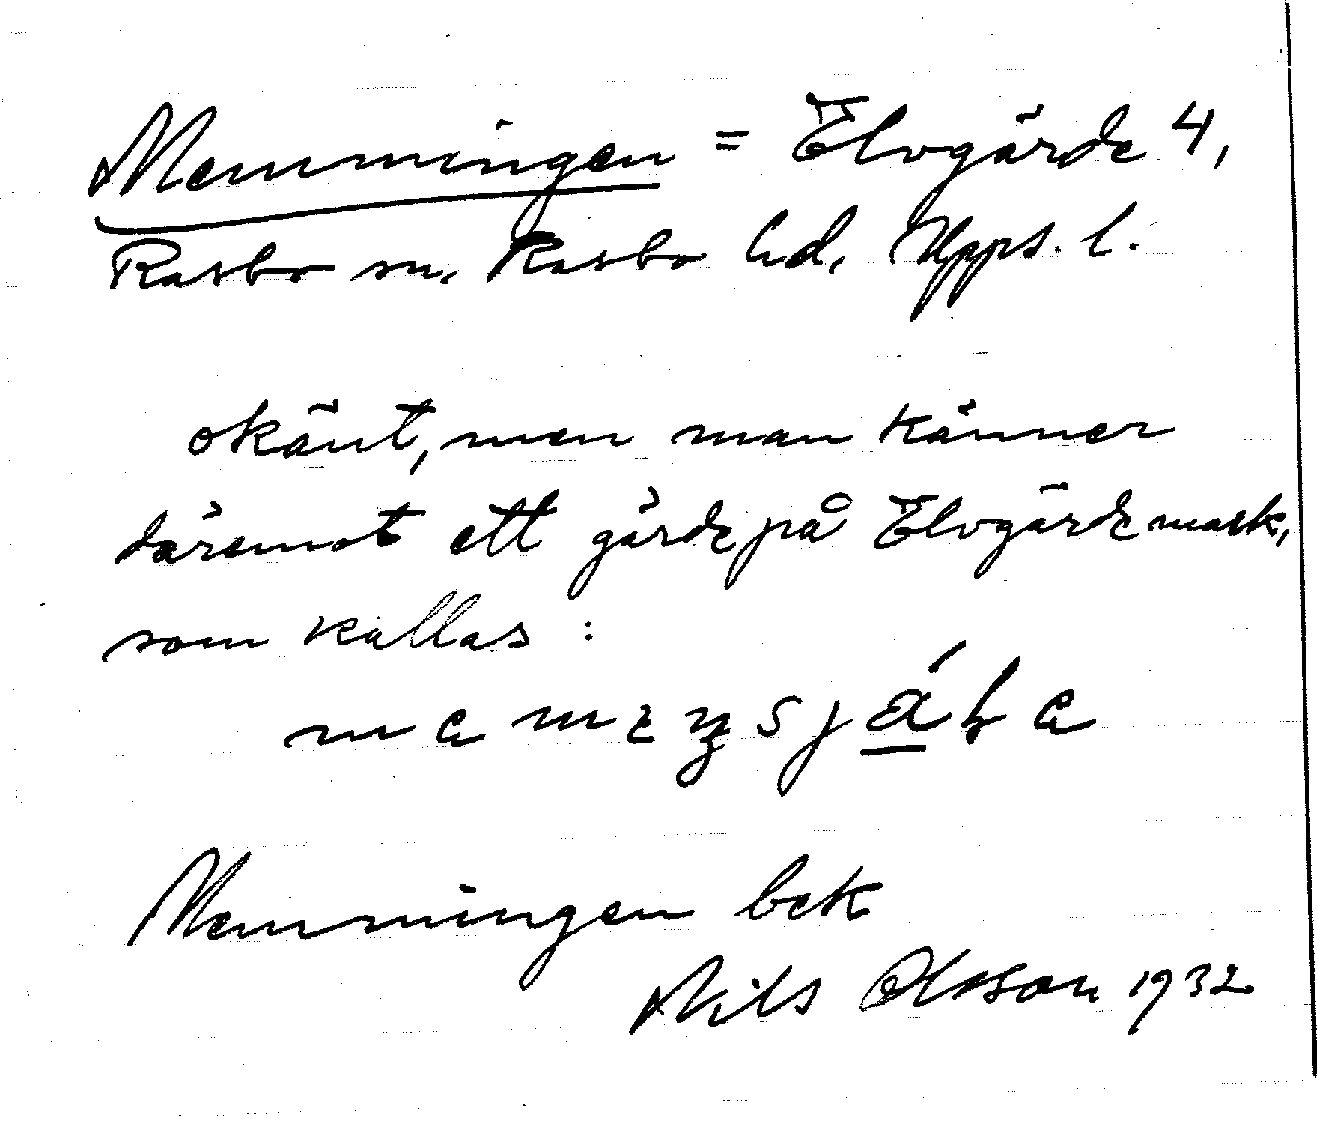 Memmingen = Elvgärde 4,
Rasbo sn, Rasbo hd, Upps. l.
okänt, men man känner
däremot ett gärde på Elvgärde mark,
som kallas :
Memmingen bek
Nils Olsson 1932